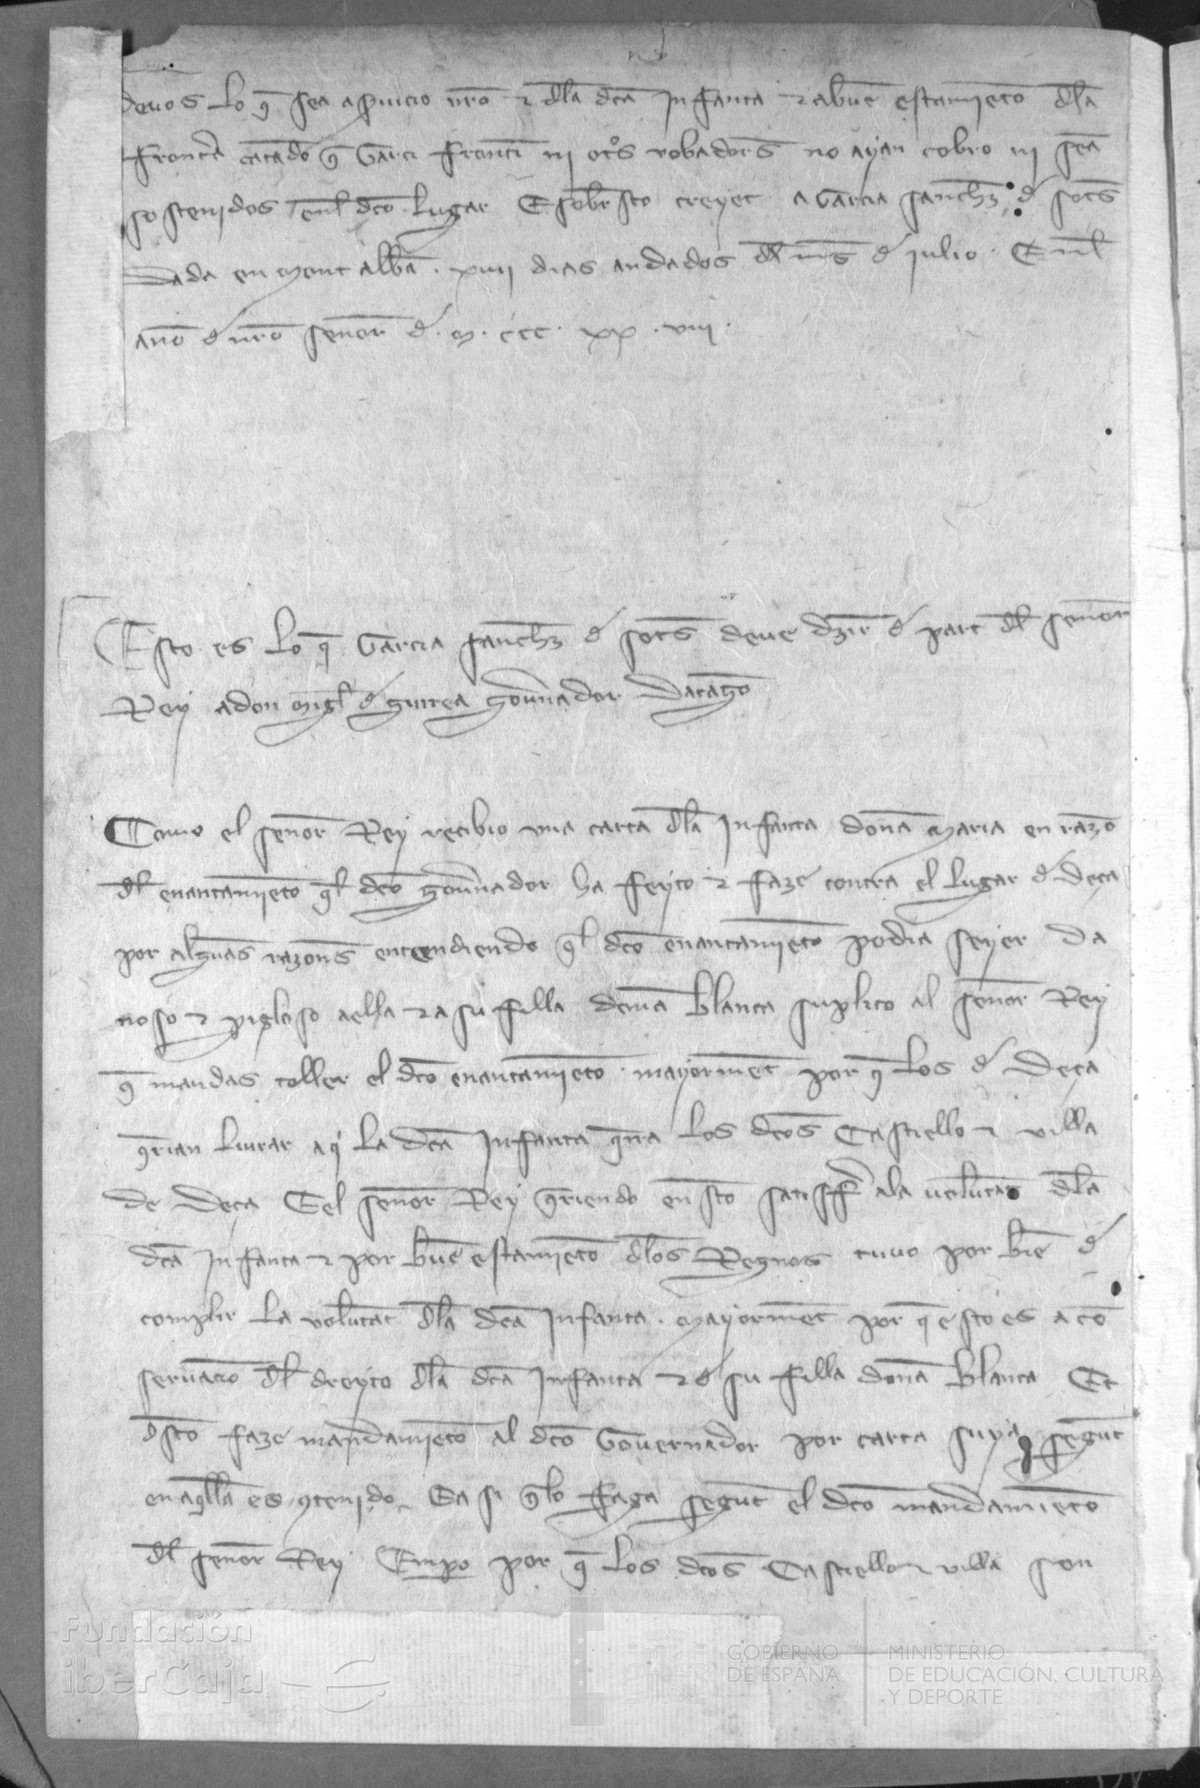 deuos lo q̄ sea aseruicio nr̄o ⁊ dl̄a dc̄a Infanta ⁊ abuē estamiēto dl̄a
Frontr̄a catādo q̄ Garci ni otr̄s robadors̄ no ayan cobro ni seā
sostenidos enl̄ dc̄o lugar E sobr̄sto creyet a Garcia sanch̄z d̄ sots̄
Dada en mont albā . xiiii dias andados dl̄ mes̄ d̄ julio . Enl̄
ano d̄ nr̄o senor d̄ . m . ccc . xx . viii .
Esto es lo q̄ Garcia sanch̄z d̄ sots̄ deue dzir̄ d̄ part dl̄ senor
Rey adon migl̄ d̄ gurrea goūnador Daragō
Como el senor Rey recibio una carta dl̄a Infanta dona maria en razō
dl̄ enantamiēto q̄l dc̄o goūnador ha feyto ⁊ faze contra el lugar d̄ Deça
por algunas razons̄ entendiendo q̄l dc̄o enantamiēto podia seyer Da
noso ⁊ pigloso aella ⁊ a su filla dona blanca suplico al senor Rey
q̄ mandas toller el dc̄o enantamiēto . mayorment por q̄ los d̄ Deça
q̄rian liurar a q̄ la dc̄a Infanta q̄rra los dc̄os Castiello ⁊ villa
de Deça E el senor Rey q̄riendo en sto satisff̄ ala volūtat dl̄a
dc̄a Infanta ⁊ por buē estamiēto dl̄os Regnos tuuo por biē d̄
complir la volūtat dl̄a dc̄a Infanta . mayorment por q̄ esto es a cō
seruaciō dl̄ dreyto dl̄a dc̄a Infanta ⁊ d̄ su filla dona blanca Et
dsto faze mandamiēto al dc̄o Gouernador por carta suya segunt
en aq̄lla es ꝯtenido Ea si q̄lo faga segunt el dc̄o mandamiēto
dl̄ senor Rey Empo por q̄ los dc̄os Castiello ⁊ villa son
Fundación
iberCaja
GOBIERNO
DE ESPAÑA
MINISTERIO
DE EDUCACIÓN, CULTURA
Y DEPORTE